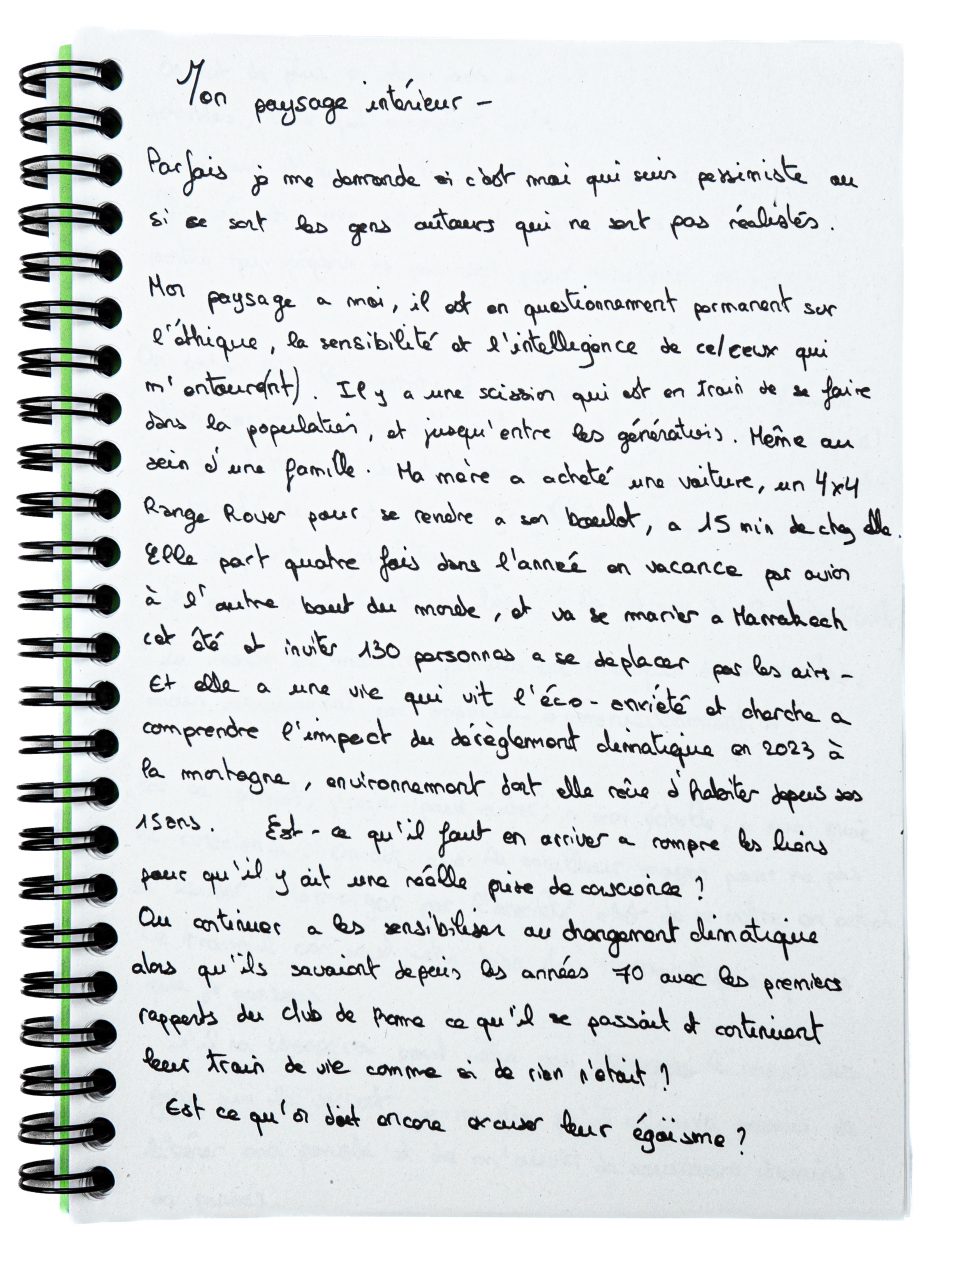 Mon paysage intérieur -
Parfois je me demande si c'est moi qui suis pessimiste ou
si ce sont les gens autours qui ne sont pas réalistes.
Mon paysage a moi, il est en questionnement permanent sur
l'éthique, la sensibilité et l'intelligence de ce/ceux qui
m'entoure(nt). Il y a une scission qui est en train de se faire
dans la population, et jusqu'entre les générations. Même au
sein d'une famille. Ma mère a acheté une voiture, un 4x4
Range Rover pour se rendre a son boulot, a 15 min de chez elle.
Elle part quatre fois dans l'année en vacance par avion
à l'autre bout du monde, et va se marier a Marrakech
cet été et inviter 130 personnes a se deplacer par les airs -
Et elle a une vie qui vit l'éco-anxiété et cherche a
comprendre l'impact du derèglement climatique en 2023 à
la montagne, environnement dont elle rêve d'habiter depuis ses
15ans. Est-ce qu'il faut en arriver a rompre les liens
pour qu'il y ait une réelle prise de conscience ?
Ou continuer a les sensibiliser au changement climatique
alors qu'ils savaient depuis les années 70 avec les premiers
rapports du Club de Rome ce qu'il se passait et continuent
leur train de vie comme si de rien n'était ?
Est ce qu'on doit encore excuser leur égoïsme ?